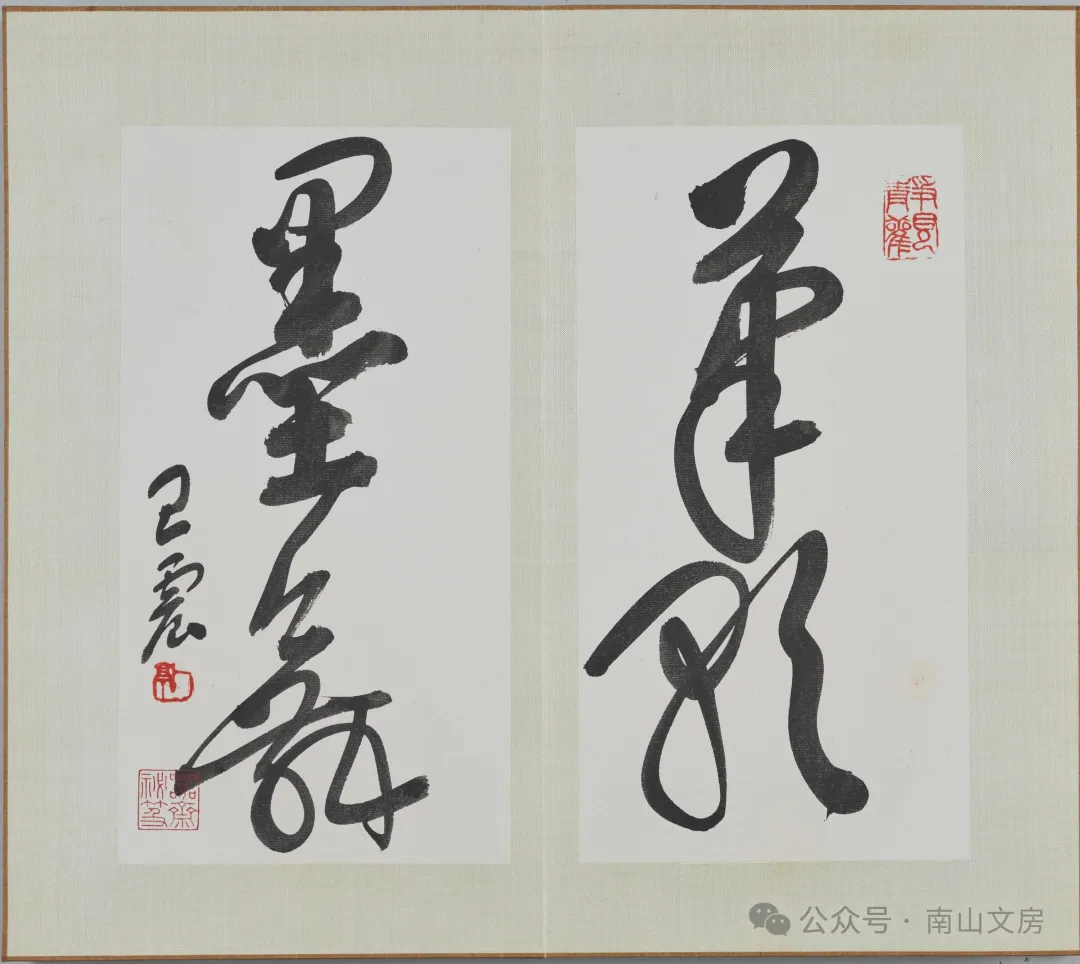 靜觀
筆歌
墨舞
王震
公众号·南山文房